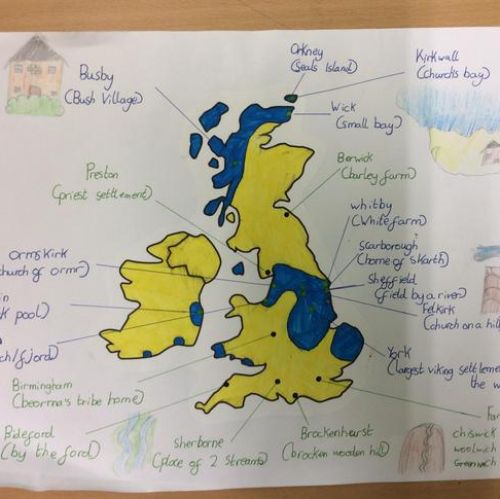 Orkney
(Seals Island)
Kirkwall
(Church's bay)
Busby
(Bush Village)
Wick
(small bay)
Preston
(priest settlement)
Berwick
(barley farm)
whitby
(White farm)
Scarborough
(home of Skarth)
Ormskirk
church of ormr)
Sheffield
(field by a river)
Felkirk
(church on a hill
in
k pool)
ch/fjord)
York
(largest viking settleme
the w
Birmingham
(beorma's tribe home)
Bideford
(by the ford)
Sherborne
(place of 2 Streams)
Brockenhurst
(brocken wooden hill)
chiswick
woolwich
Greenwich